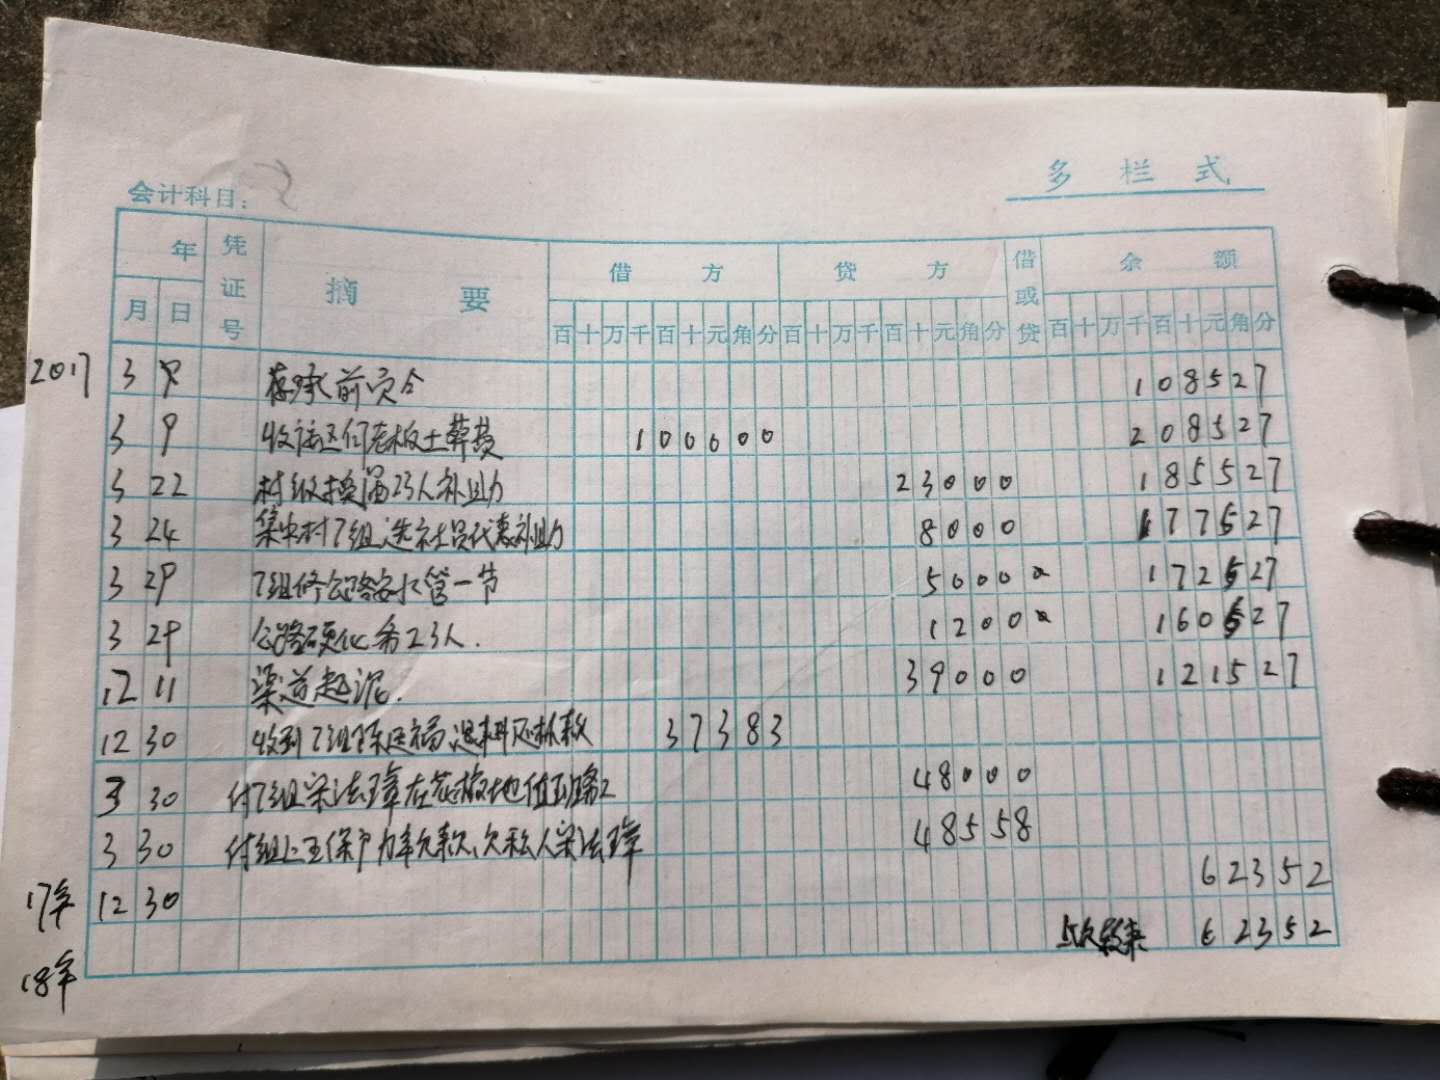 会计科目:
多栏式
年 凭证号 摘要 借方 贷方 借或贷 余额
月 日 百十万千百十元角分 百十万千百十元角分 百十万千百十元角分
2017 3 9 承前页 108527
3 9 收 老板土葬费 100000 208527
3 22 村级换届23人补助 23000 185527
3 24 集中村7组选社员代表补助 8000 177527
3 29 7组修公路安水管一节 5000 172527
3 29 公路硬化 23人. 12000 160527
12 11 渠道起泥. 39000 121527
12 30 收到7组陈 款 37383
3 30 付7组宋法璋在 地 48000
3 30 付组上五保户 欠款、欠私人宋法璋 48558
17年 12 30 62352
18年 上次转来 62352